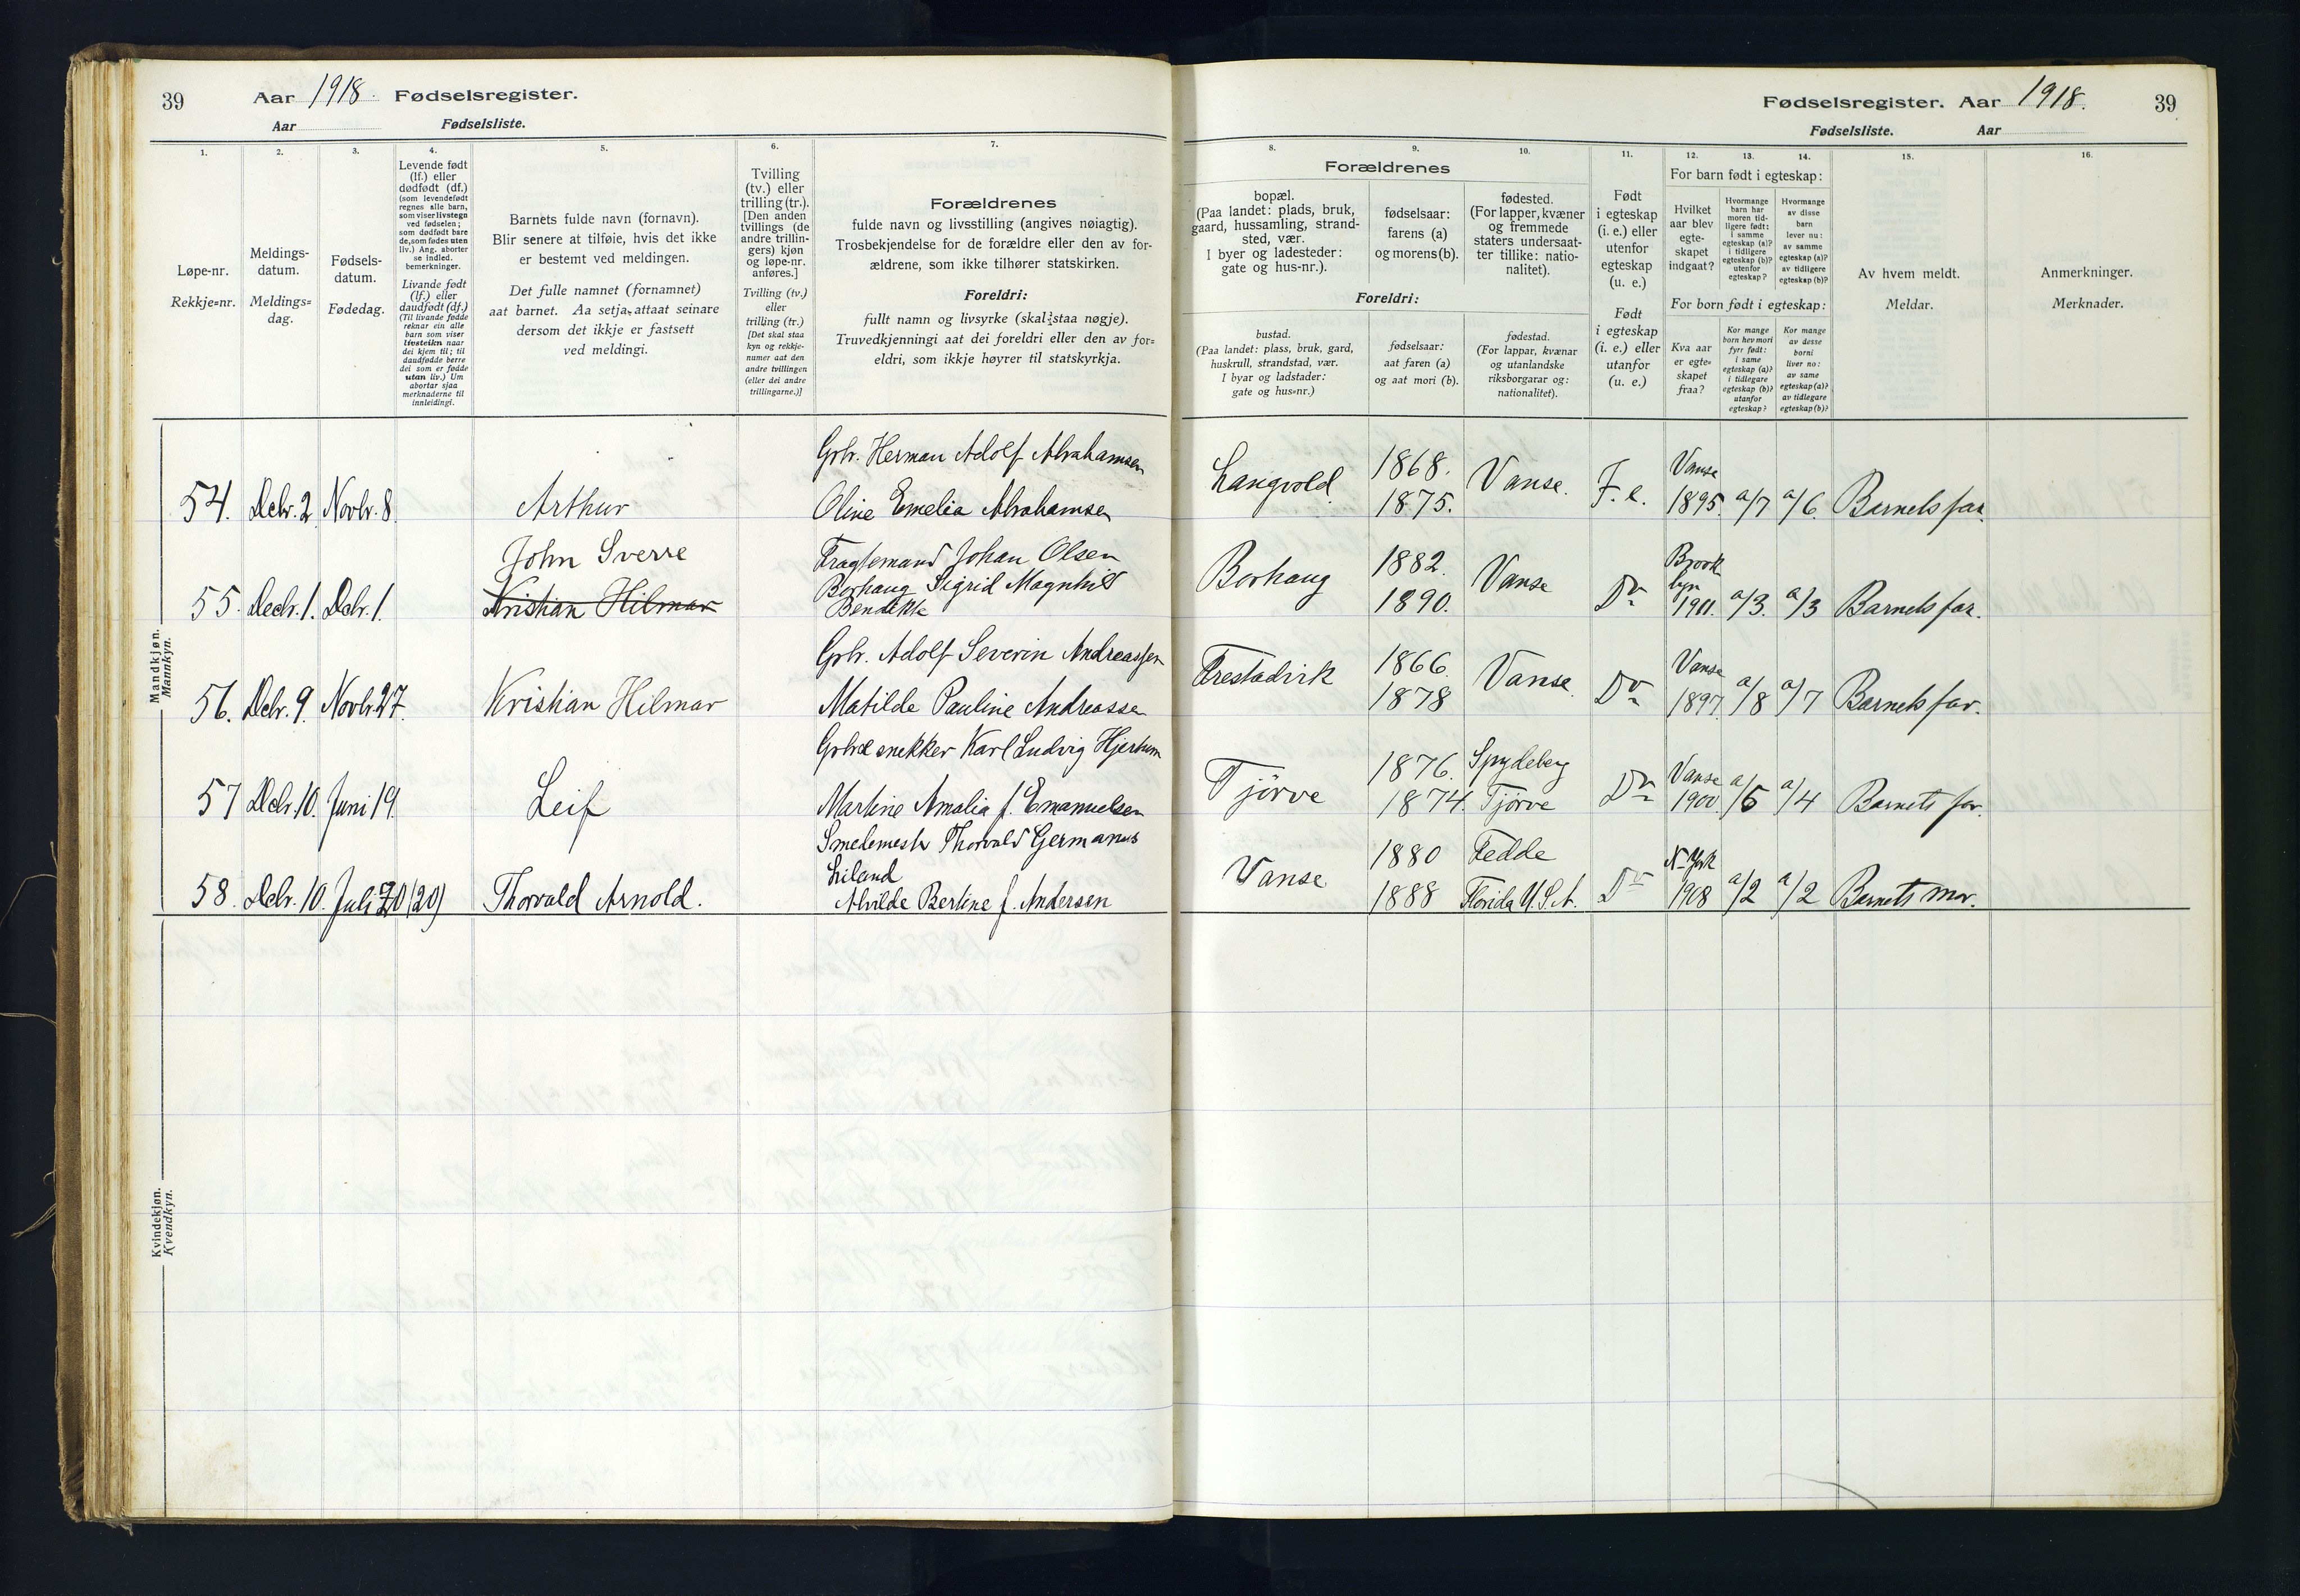 39 Aar 1918. Fødselsregister.
Aar Fødselsliste.
1. 2. 3. 4. 5. 6. 7.
Løpe-nr.
Rekkje=nr.
Meldings-
datum.
Meldings=
dag.
Fødsels-
datum.
Fødedag.
Levende født
(lf.) eller
dødfødt (df.)
(som levendefødt
regnes alle barn,
som viser livstegn
ved fødselen;
som dødfødt bare
de, som fødes uten
liv.) Ang. aborter
se indled.
bemerkninger.
Livande født
(lf.) eller
daudfødt (df.)
(Til livande fødde
reknar ein alle
barn som viser
livsteikn naar
dei kjem til; til
daudfødde berre
dei som er fødde
utan liv.) Um
abortar sjaa
merknaderne til
innleidingi.
Barnets fulde navn (fornavn).
Blir senere at tilføie, hvis det ikke
er bestemt ved meldingen.
Det fulle namnet (fornamnet)
aat barnet. Aa setja attaat seinare
dersom det ikkje er fastsett
ved meldingi.
Tvilling
(tv.) eller
trilling (tr.).
[Den anden
tvillings (de
andre trillin-
gers) kjøn
og løpe-nr.
anføres.]
Tvilling (tv.)
eller
trilling (tr.)
[Det skal staa
kyn og rekkje-
numer aat den
andre tvillingen
(eller dei andre
trillingarne.)]
Forældrenes
fulde navn og livsstilling (angives nøiagtig).
Trosbekjendelse for de forældre eller den av for-
ældrene, som ikke tilhører statskirken.
Foreldri:
fullt namn og livsyrke (skal staa nøgje).
Truvedkjenningi aat dei foreldri eller den av for=
eldri, som ikkje høyrer til statskyrkja.
Mandkjøn.
Mannkyn.
Grbr. Herman Adolf Abrahamsen
54. Dcbr. 2 Novbr. 8. Arthur Oline Emelia Abrahamsen
John Sverre Fragtemand Johan Olsen
Borhaug Sigrid Magnhild
55. Decbr. 1. Dcbr. 1. Kristian Hilmar Bendikte
Grbr. Adolf Severin Andreassen
56. Dcbr. 9. Novbr. 27. Kristian Hilmar Matilde Pauline Andreassen
Grbr & snekker Karl Ludvig Hjertum
57 Dcbr. 10. Juni 19. Leif Martine Amalia f. Emanuelsen
Smedemestr Thorvald Germanus
Liland
58. Dcbr. 10. Juli 20 (20) Thorvald Arnold. Alvilde Bertine f. Andersen
Kvindekjøn.
Kvendkyn.
Fødselsregister. Aar 1918. 39
Fødselsliste. Aar
8. 9. 10. 11. 12. 13. 14. 15. 16.
Forældrenes
bopæl.
(Paa landet: plads, bruk,
gaard, hussamling, strand-
sted, vær.
I byer og ladesteder:
gate og hus-nr.).
fødselsaar:
farens (a)
og morens (b).
fødested.
(For lapper, kvæner
og fremmede
staters undersaat-
ter tillike: natio-
nalitet).
Foreldri:
bustad.
(Paa landet: plass, bruk, gard,
huskrull, strandstad, vær.
I byar og ladstader:
gate og hus=nr.)
fødselsaar:
aat faren (a)
og aat mori (b).
fødestad.
(For lappar, kvænar
og utanlandske
riksborgarar og:
nationalitet).
Født
i egteskap
(i. e.) eller
utenfor
egteskap
(u. e.)
Født
i egteskap
(i. e.) eller
utanfor
(u. e.)
For barn født i egteskap:
Hvilket
aar blev
egte-
skapet
indgaat?
Hvormange
barn har
moren tid-
ligere født:
i samme
egteskap (a)?
i tidligere
egteskap (b)?
utenfor
egteskap?
Hvormange
av disse
barn
lever nu:
av samme
egteskap (a)?
av tidligere
egteskap (b)?
For born født i egteskap:
Kva aar
er egte-
skapet
fraa?
Kor mange
born hev mori
fyrr født:
i same
egteskap (a)?
i tidlegare
egteskap (b)?
utanfor
egteskap?
Kor mange
av desse
borni
liver no:
av same
egteskap (a)?
av tidlegare
egteskap (b)?
Av hvem meldt.
Meldar.
Anmerkninger.
Merknader.
Langvold. 1868. Vanse. Vanse
1875. F. e. 1895. a/7 a/6. Barnets far.
Borhaug 1882. Vanse Brook
lyn
1890. Do 1911. a/3. a/3 Barnets far.
Prestadvik 1866. Vanse. Vanse
1878 Do 1897. a/8 a/7 Barnets far.
Tjörve 1876. Spydeberg Vanse
1874. Tjörve Do 1900 a/5 a/4 Barnets far.
Vanse 1880 Fedde N-York
1888 Florida U.S.A. Do 1908 a/2 a/2 Barnets mor.